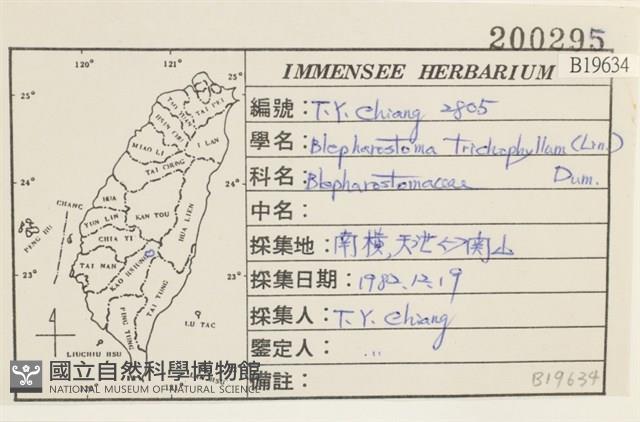 200295
B19634
IMMENSEE HERBARIUM
編號：T.Y. Chiang 2805
學名：Blepharostoma trichophyllum (Lin.)
科名：Blepharostomaceae Dum.
中名：
採集地：南橫,天池<->関山
採集日期：1982.12.19
採集人：T.Y. Chiang
鑒定人： 〃
備註：
B19634
120°
121°
25°
25°
TAI PEI
I LAN
MIAO LI
TAI CHUNG
24°
24°
CHANG
HUA
YUN LIN
KAN TOU
HUA LIEN
CHIA YI
PENG HU
TAI NAN
KAO HSIUNG
23°
23°
TAI TUNG
PING TUNG
LU TAC
LIUCHIU HSU
國立自然科學博物館
NATIONAL MUSEUM OF NATURAL SCIENCE
120°
121°